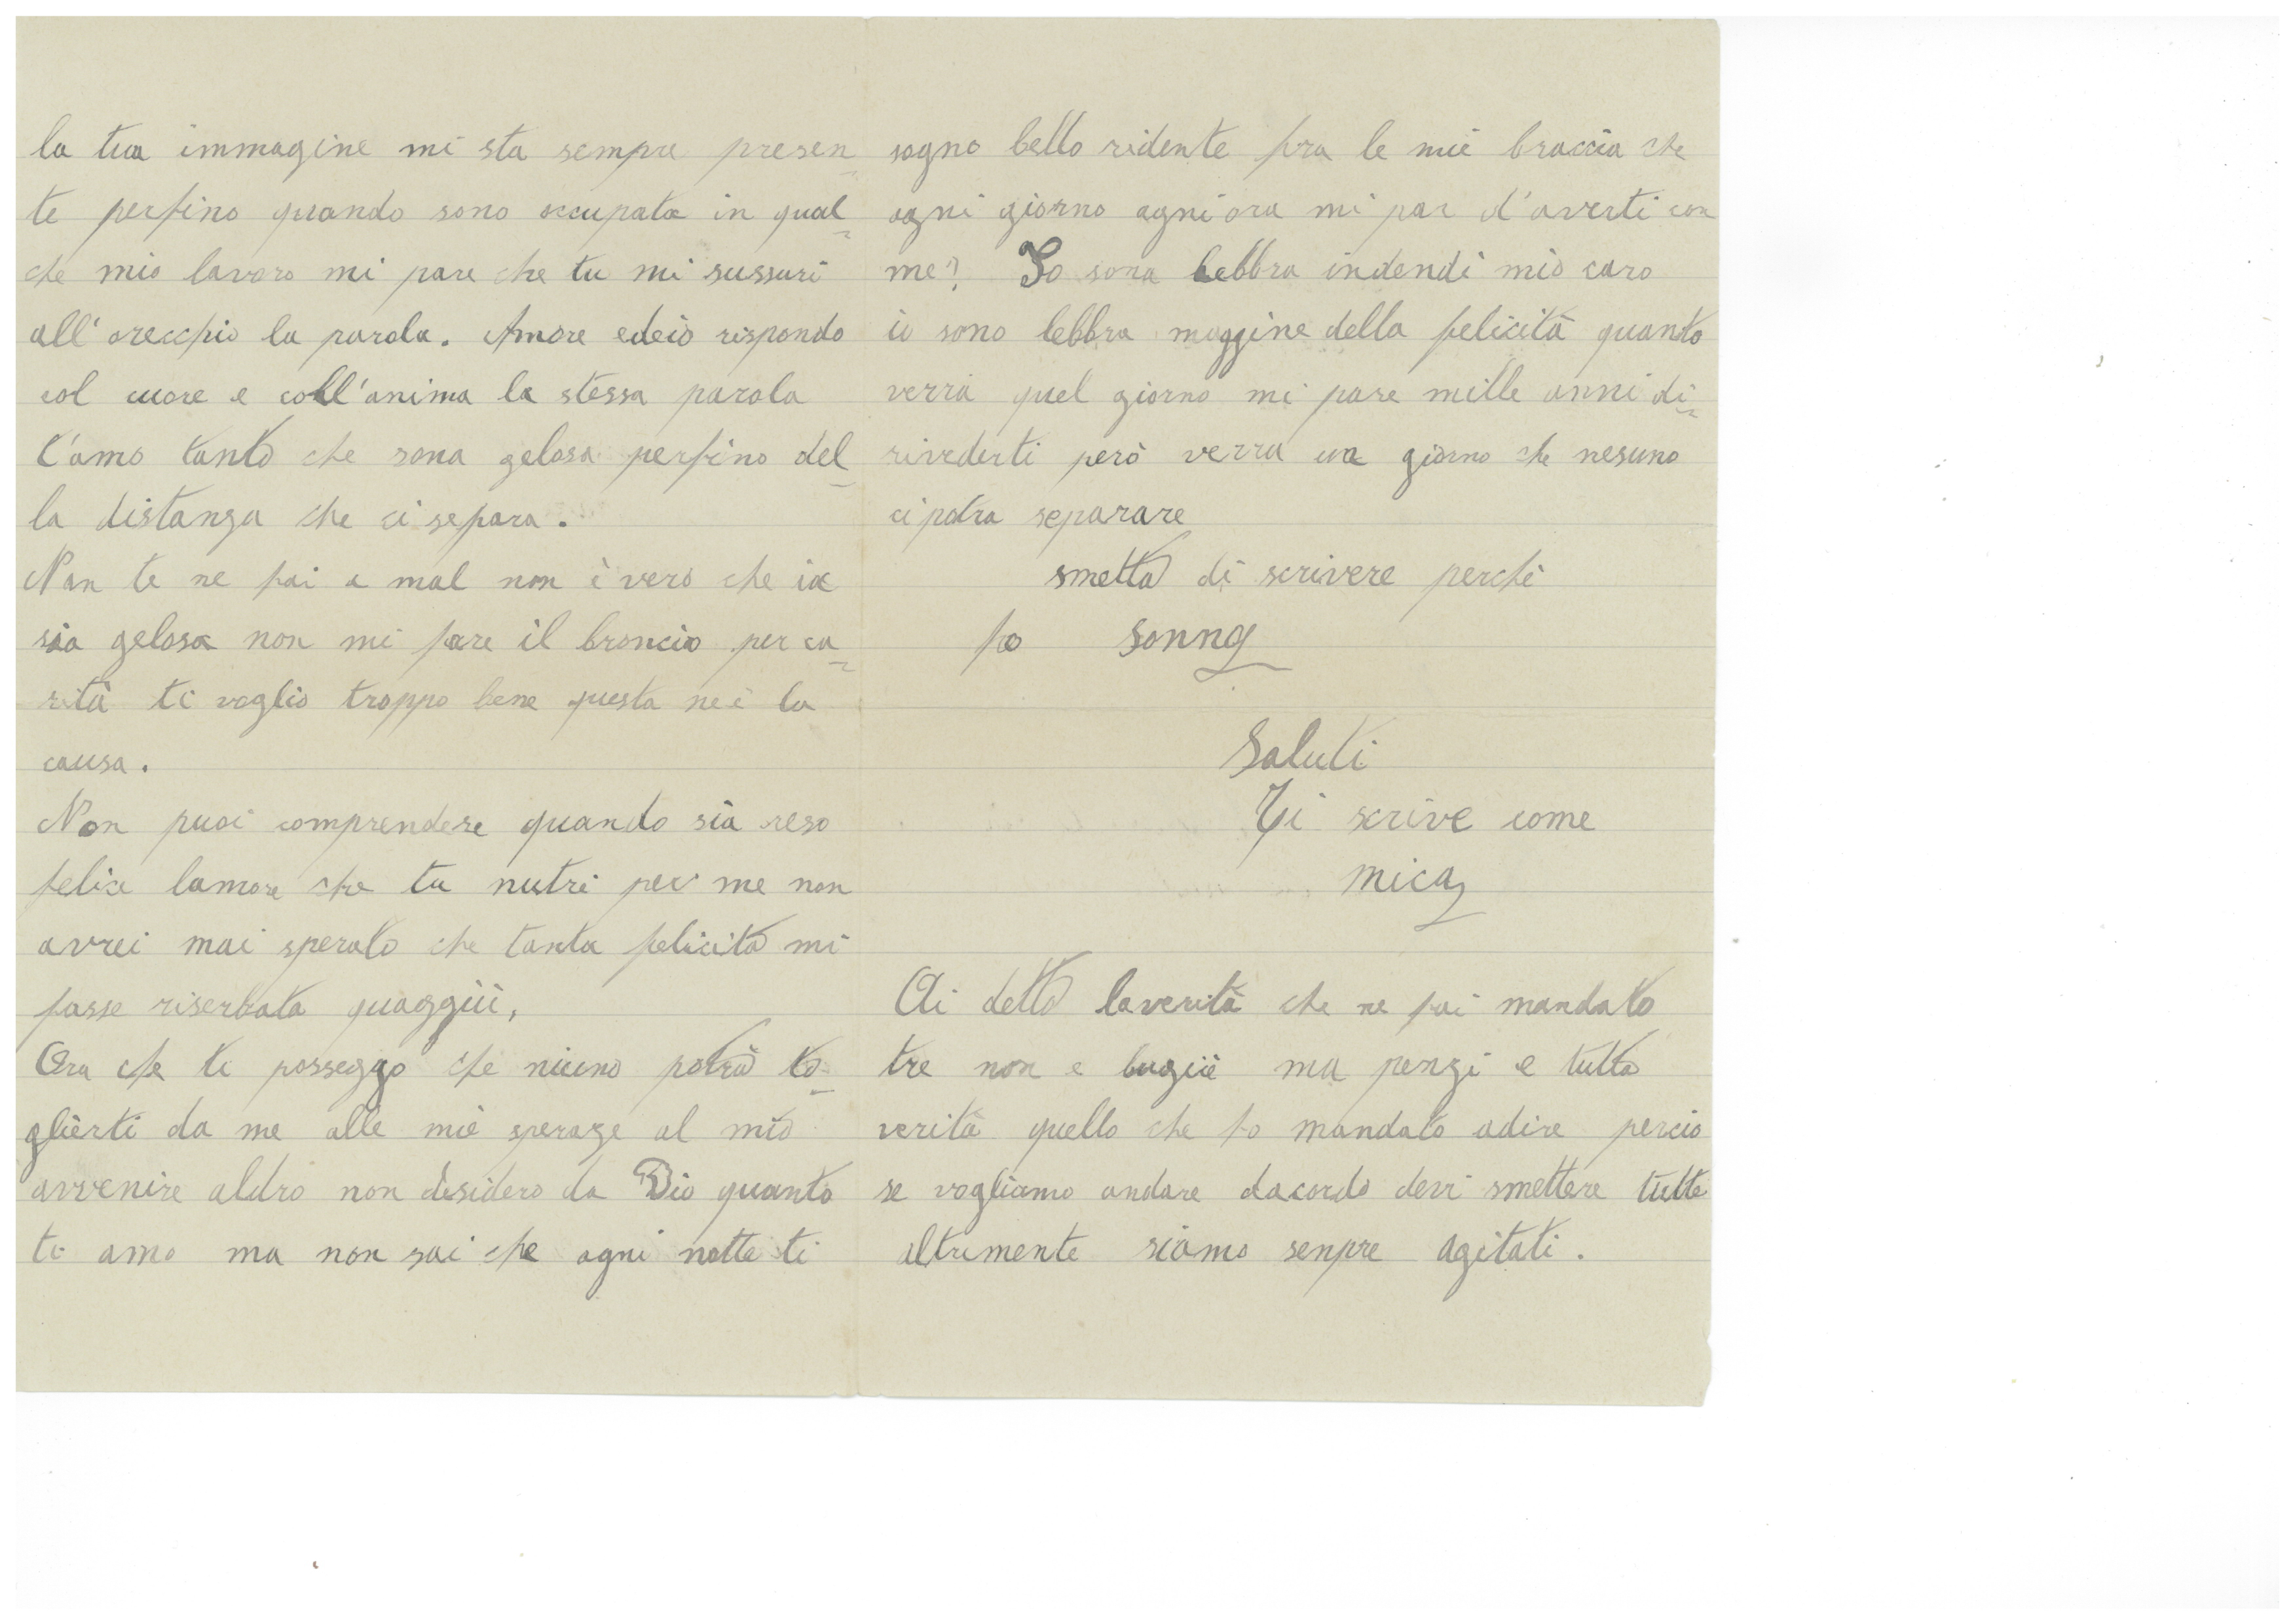 la tua immagine mi sta sempre presen
te perfino quando sono occupata in qual
che mio lavoro mi pare che tu mi sussuri
all'orecchio la parola. Amore edeio rispondo
col cuore e coll'anima la stessa parola
t'amo tanto che sona gelosa perfino del
la distanza che ci separa.
Non te ne fai a mal non è vero che io
sia gelosa non mi fare il broncio per ca
rità ti voglio troppo bene questa ne è la
causa.
Non puoi comprendere quando sia reso
felice lamore che tu nutri per me non
avrei mai sperato che tanta felicita mi
fosse riserbata quaggiù,
Ora che ti posseggo che niuno potrà to
glierti da me alle mie speraze al mio
avvenire aldro non desidero da Dio quanto
ti amo ma non sai che ogni notte ti
sogno bello ridente fra le mie braccia che
ogni giorno ogni ora mi par d'averti con
me? Io sona bebbra indendi mio caro
io sono lebbra maggine della felicità quanto
verrà quel giorno mi pare mille anni di
rivederti però verra un giorno che nesuno
ci potra separare
smetto di scrivere perchè
ho sonno
Saluti
Ti scrive come
mica
Ai detto laverità che ne fai mandato
tre non e bugiè ma penzi e tutta
verità quello che ho mandato adire percio
se vogliamo andare dacordo devi smettere tutte
altrimente siamo senpre agitati.